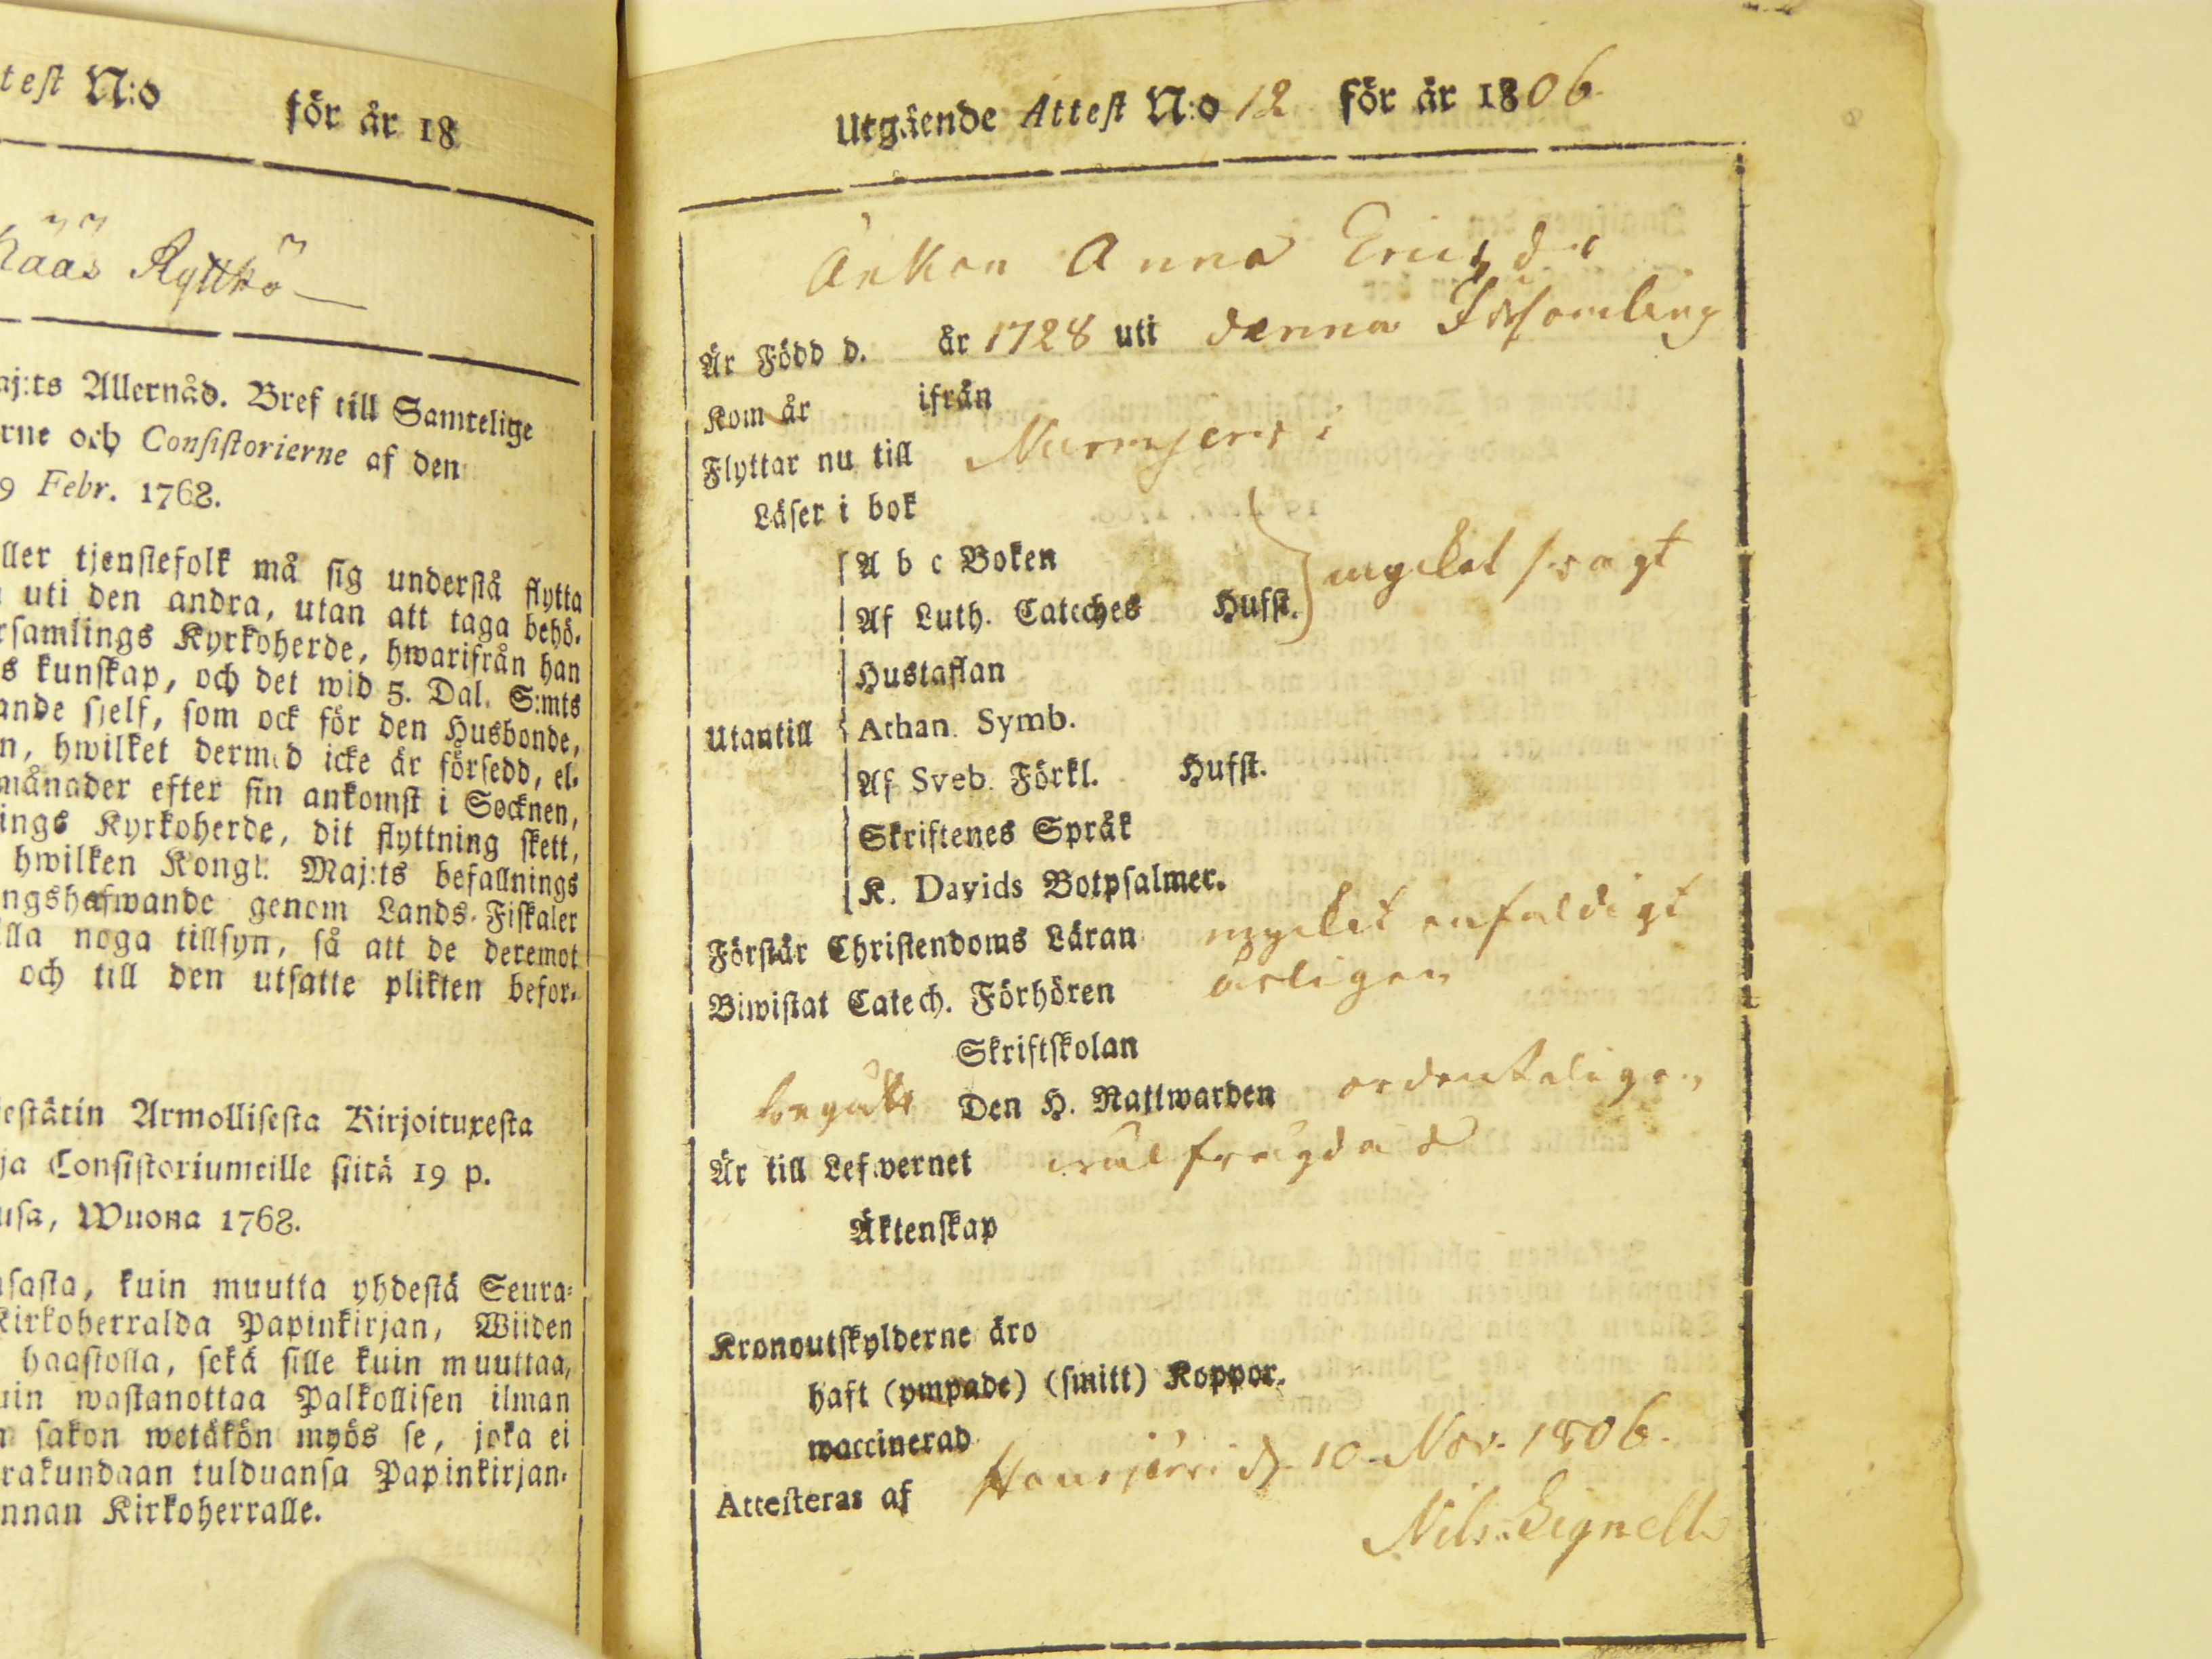 test N:o för år 18
kääs Kyttkö
aj:ts Allernåd. Bref till Samtelige
rne och Consistorierne af den
9 Febr. 1768.
ller tjenstefolk må sig understå flytta
uti den andra, utan att taga behö-
rsamlings Kyrkoherde, hwarifrån han
s kunskap, och det wid 5. Dal. S:mts
ande sjelf, som ock för den Husbonde,
n, hwilket dermed icke är försedd, el-
månader efter sin ankomst i Socknen,
ings Kyrkoherde, dit flyttning skett,
hwilken Kongl. Maj:ts befallnings
ngshafwande genom Lands-Fiskaler
lla noga tillsyn, så att de deremot
och till den utsatte plikten befor-
jestätin Armollisesta Kirjoituxesta
ja Consistoriumeille siitä 19 p.
usa, Wuona 1768.
sasta, kuin muutta yhdestä Seura-
Kirkoherralda Papinkirjan, Wiiden
haastolla, sekä sille kuin muuttaa,
uin wastanottaa Palkollisen ilman
n sakon wetäkön myös se, joka ei
rakundaan tulduansa Papinkirjan-
nnan Kirkoherralle.
Utgående Attest N:o 12 för år 1806.
Änkan Anna Ericsdr
Är Född d. år 1728 uti denna Församling
Kom år ifrån
Flyttar nu till Nurmjervi
Läser i bok
A b c Boken
Af Luth. Cateches Hufst. mycket svagt
Hustaflan
Utantill Athan. Symb.
Af Sveb. Förkl. Hufst.
Skriftenes Språk
K. Davids Botpsalmer.
Förstår Christendoms Läran mycket enfaldigt
Biwistat Catech. Förhören årligen
Skriftskolan
begått Den H. Nattwarden ordenteligen
Är till Lefwernet välfrägdad
Äktenskap
Kronoutskylderne äro
haft (ympade) (smitt) Koppor.
waccinerad
Attesteras af Hausjärvi d. 10 Nov. 1806.
Nils Lignell